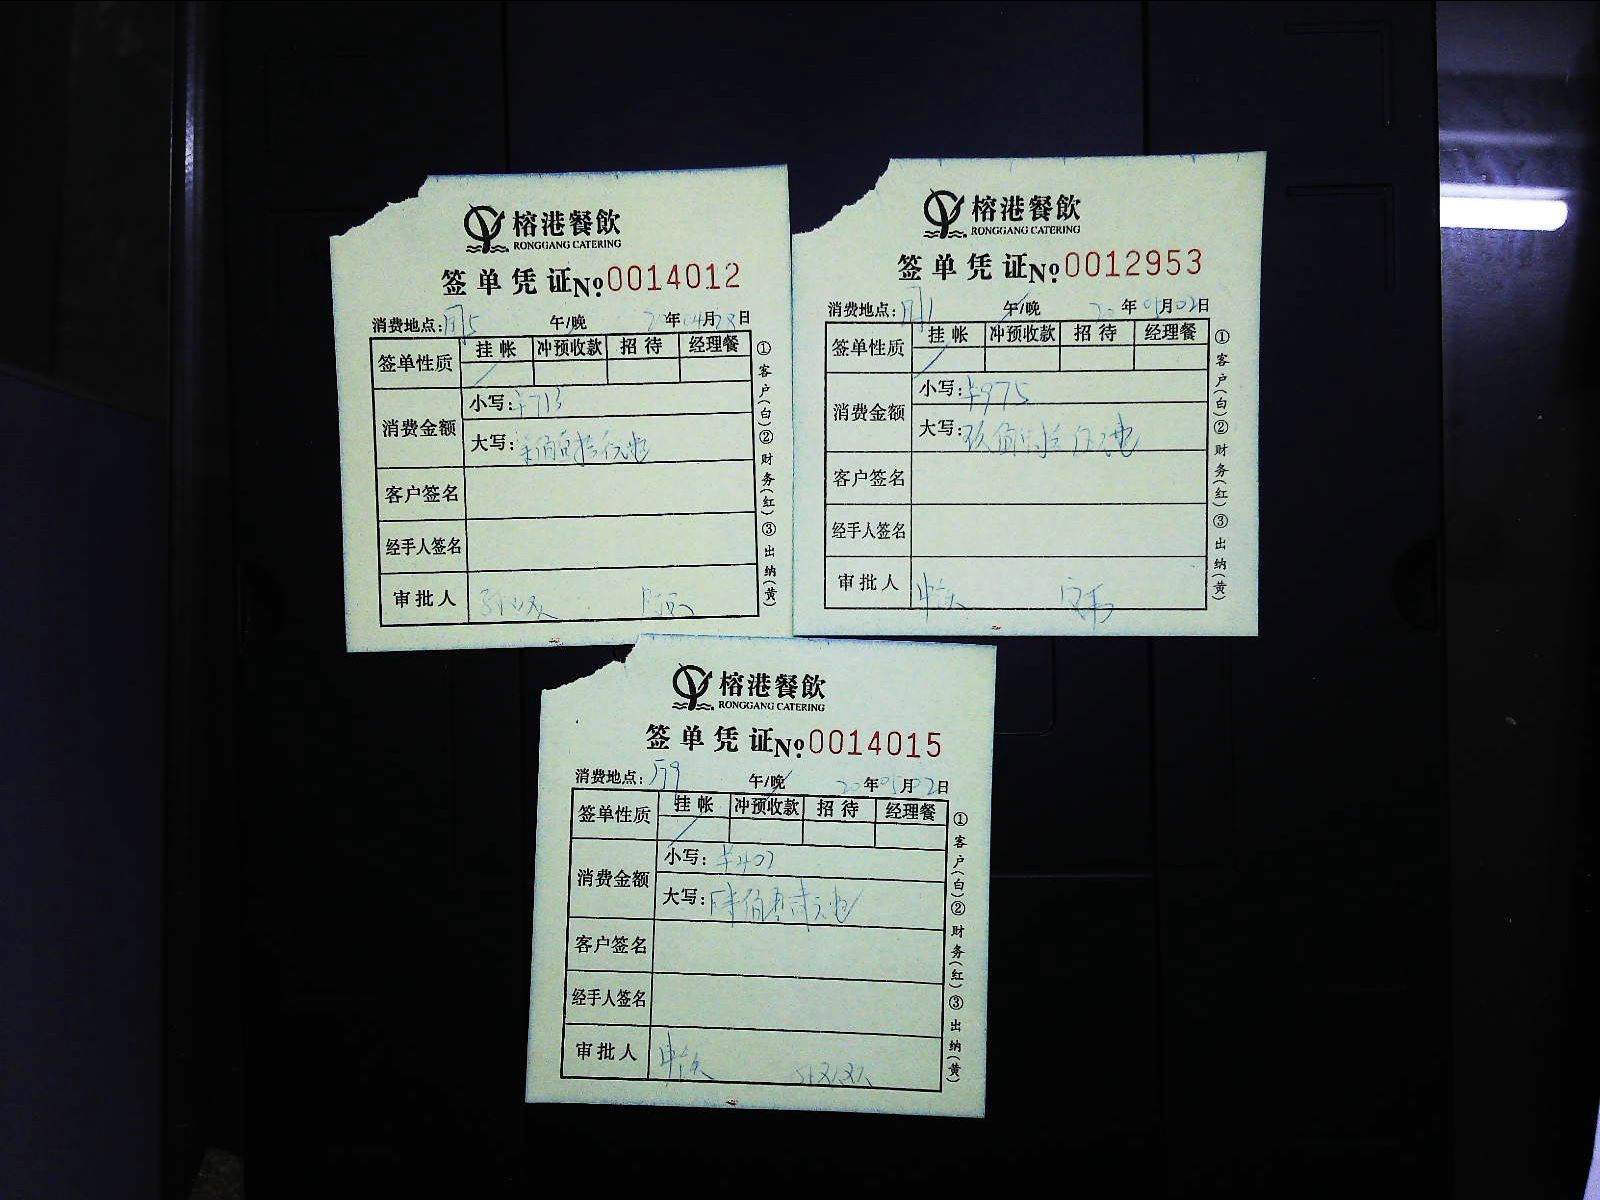 榕港餐飲
RONGGANG CATERING
签单凭证No.0014012
消费地点: 午/晚 年04月28日
签单性质 挂帐 冲预收款 招待 经理餐
消费金额 小写:
大写:
客户签名
经手人签名
审批人
①客户(白)②财务(红)③出纳(黄)
榕港餐飲
RONGGANG CATERING
签单凭证No.0012953
消费地点: 午/晚 20年05月02日
签单性质 挂帐 冲预收款 招待 经理餐
消费金额 小写:¥975
大写:玖佰柒拾伍元
客户签名
经手人签名
审批人
①客户(白)②财务(红)③出纳(黄)
榕港餐飲
RONGGANG CATERING
签单凭证No.0014015
消费地点: 午/晚 20年05月02日
签单性质 挂帐 冲预收款 招待 经理餐
消费金额 小写:
大写:
客户签名
经手人签名
审批人
①客户(白)②财务(红)③出纳(黄)